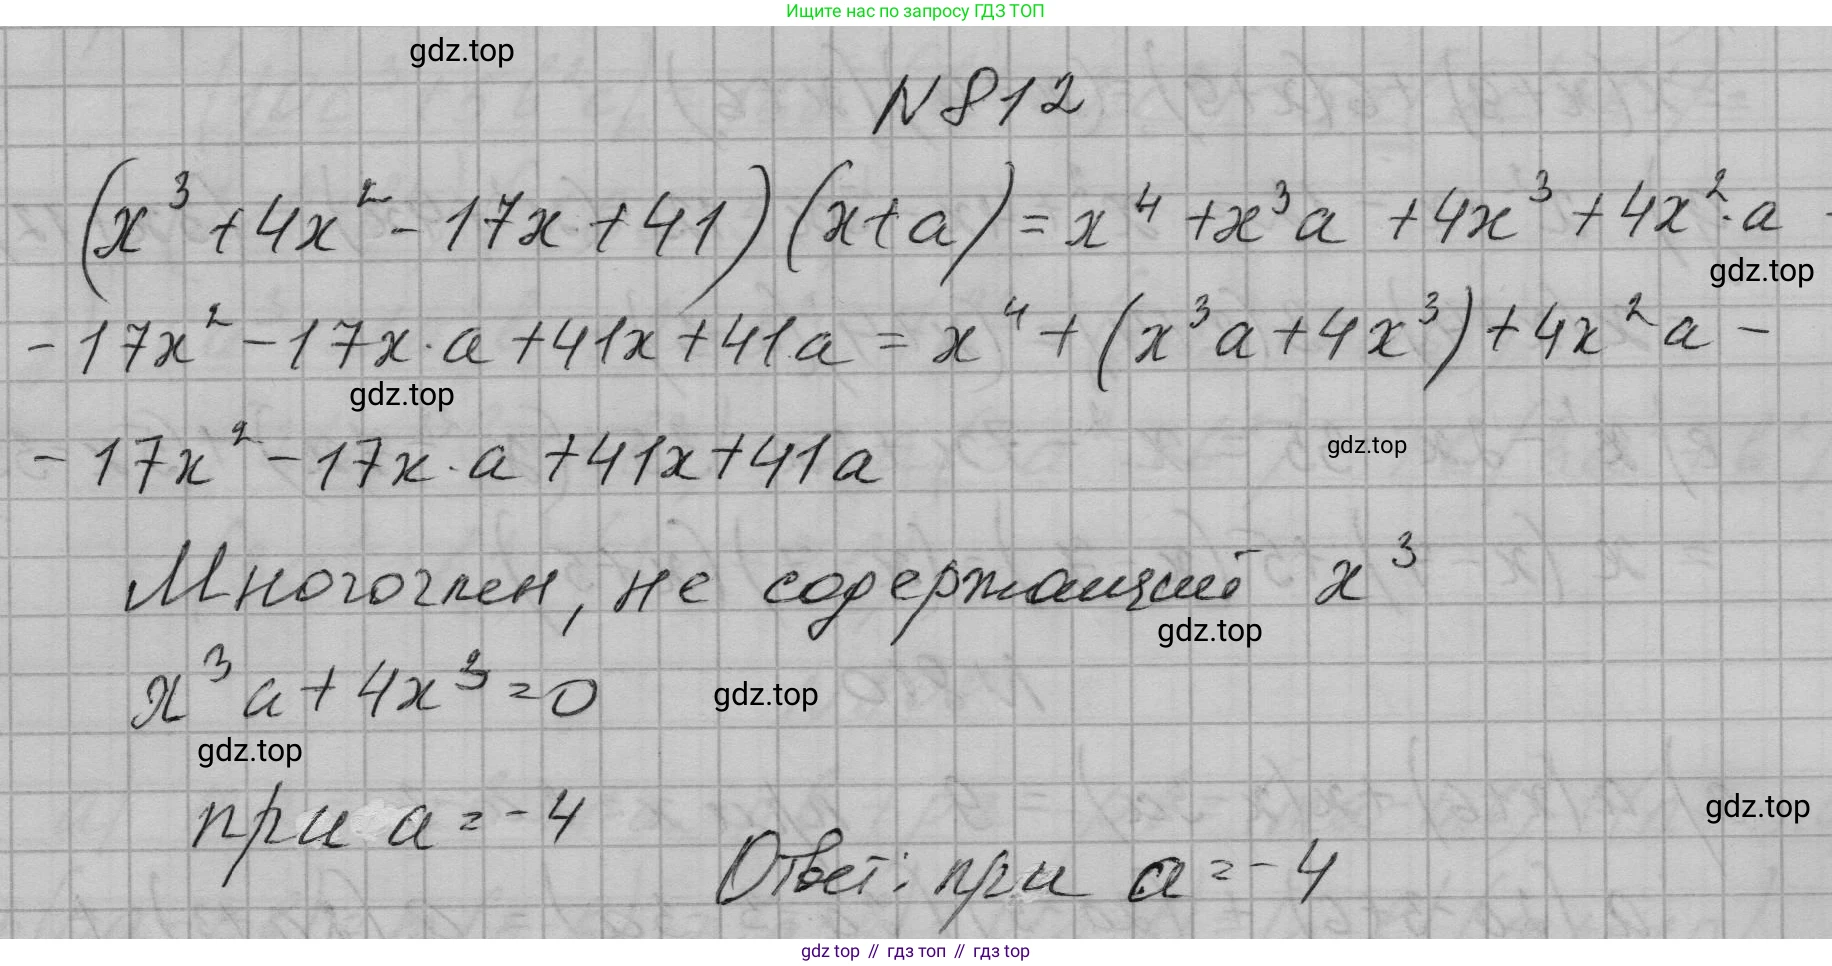 Ищите нас по запросу ГДЗ ТОП
gdz.top
N 812
(x³ + 4x² - 17x + 41)(x + a) = x⁴ + x³a + 4x³ + 4x²·a -
gdz.top
- 17x² - 17x·a + 41x + 41a = x⁴ + (x³a + 4x³) + 4x²a -
gdz.top
- 17x² - 17x·a + 41x + 41a
gdz.top
Многочлен, не содержащий x³
gdz.top
x³a + 4x³ = 0
gdz.top
gdz.top
при a = -4
gdz.top
Ответ: при a = -4
gdz top // гдз топ // гдз top